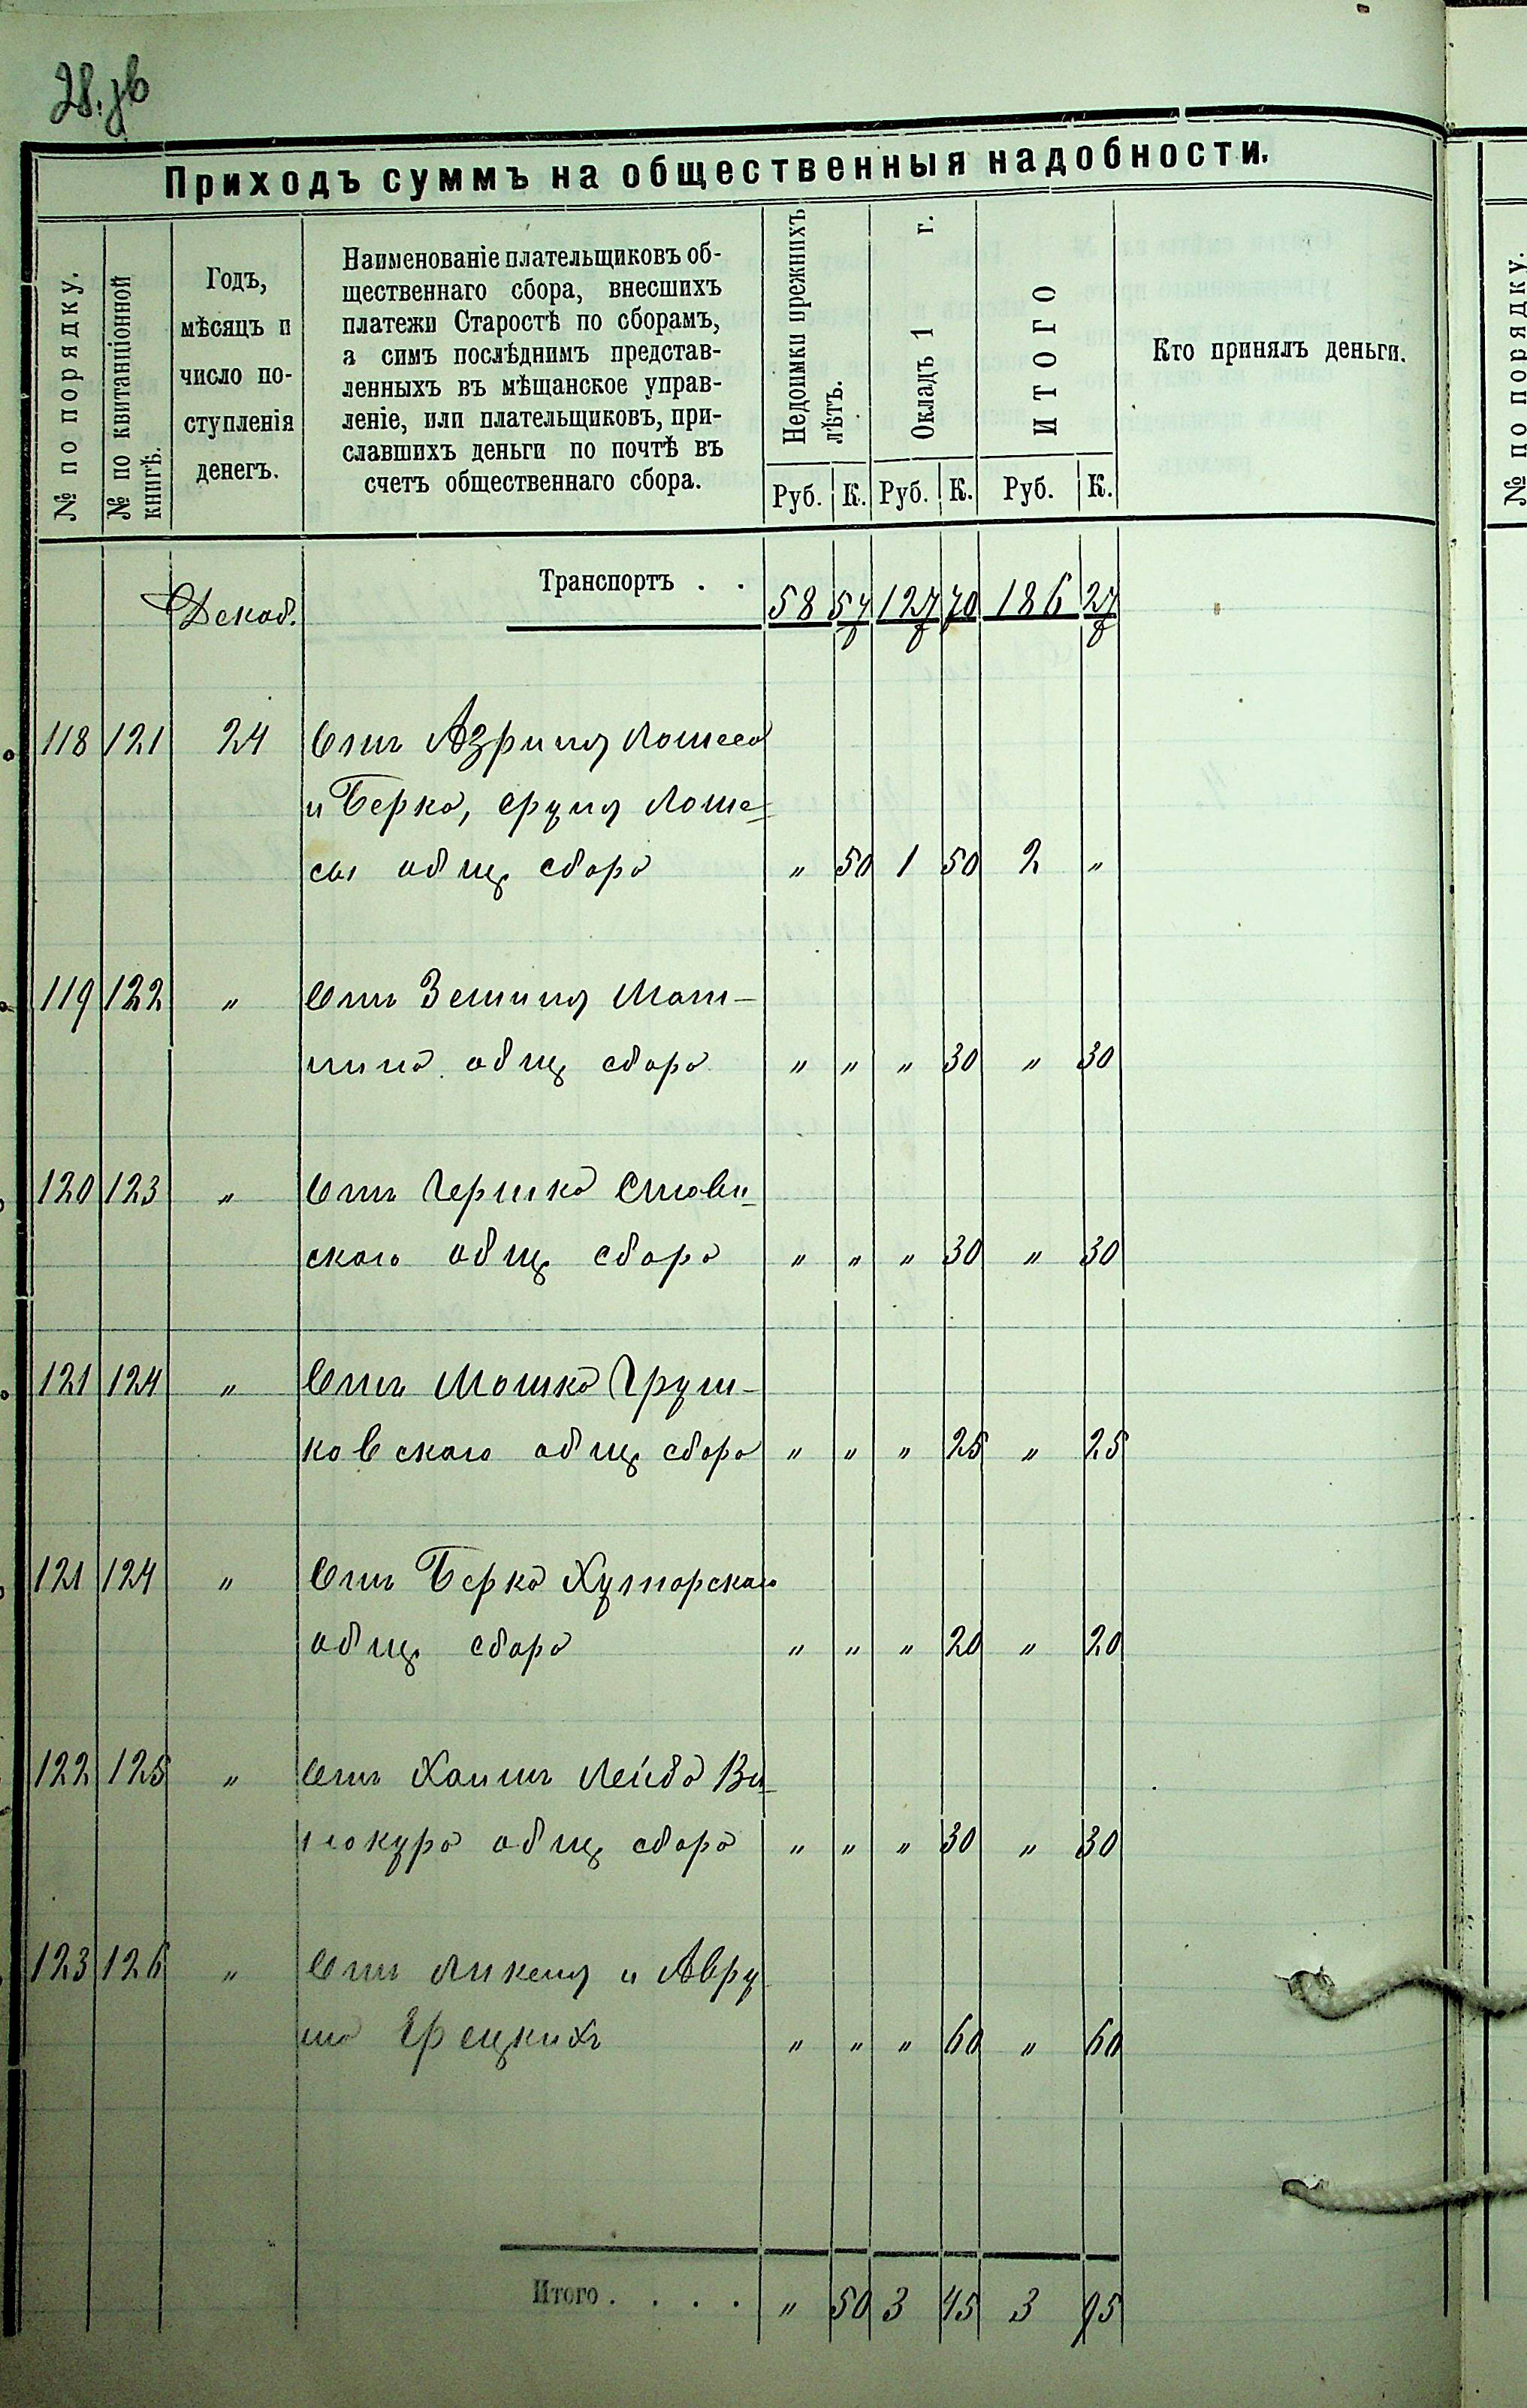 28.зв
Приходъ суммъ на общественныя надобности.
№ по порядку.
№ по квитанціонной книгѣ.
Годъ,
мѣсяцъ и
число по-
ступленія
денегъ.
Наименованіе плательщиковъ об-
щественнаго сбора, внесшихъ
платежи Старостѣ по сборамъ,
а симъ послѣднимъ представ-
ленныхъ въ мѣщанское управ-
леніе, или плательщиковъ, при-
славшихъ деньги по почтѣ въ
счетъ общественнаго сбора.
Недоимки прежнихъ лѣтъ.
Окладъ 1 г.
ИТОГО
Кто принялъ деньги.
Руб. К. Руб. К. Руб. К.
Декаб. Транспортъ . . 58 57 127 70 186 27
118 121 24 Отъ
и Берка,
сы общ сбора " 50 1 50 2 "
119 122 " Отъ
общ сбора " " " 30 " 30
120 123 " Отъ Гершка Стави-
скаго общ сбора " " " 30 " 30
121 124 " Отъ Мошка Груш-
ковскаго общ сбора " " " 25 " 25
121 124 " Отъ Берка Хуторскаго
общ сбора " " " 20 " 20
122 125 " Отъ Хаимъ Лейба Ви-
нокура общ сбора " " " 30 " 30
123 126 " Отъ и Авру
ма " " " 60 " 60
Итого . . . . " 50 3 45 3 95
№ по порядку.